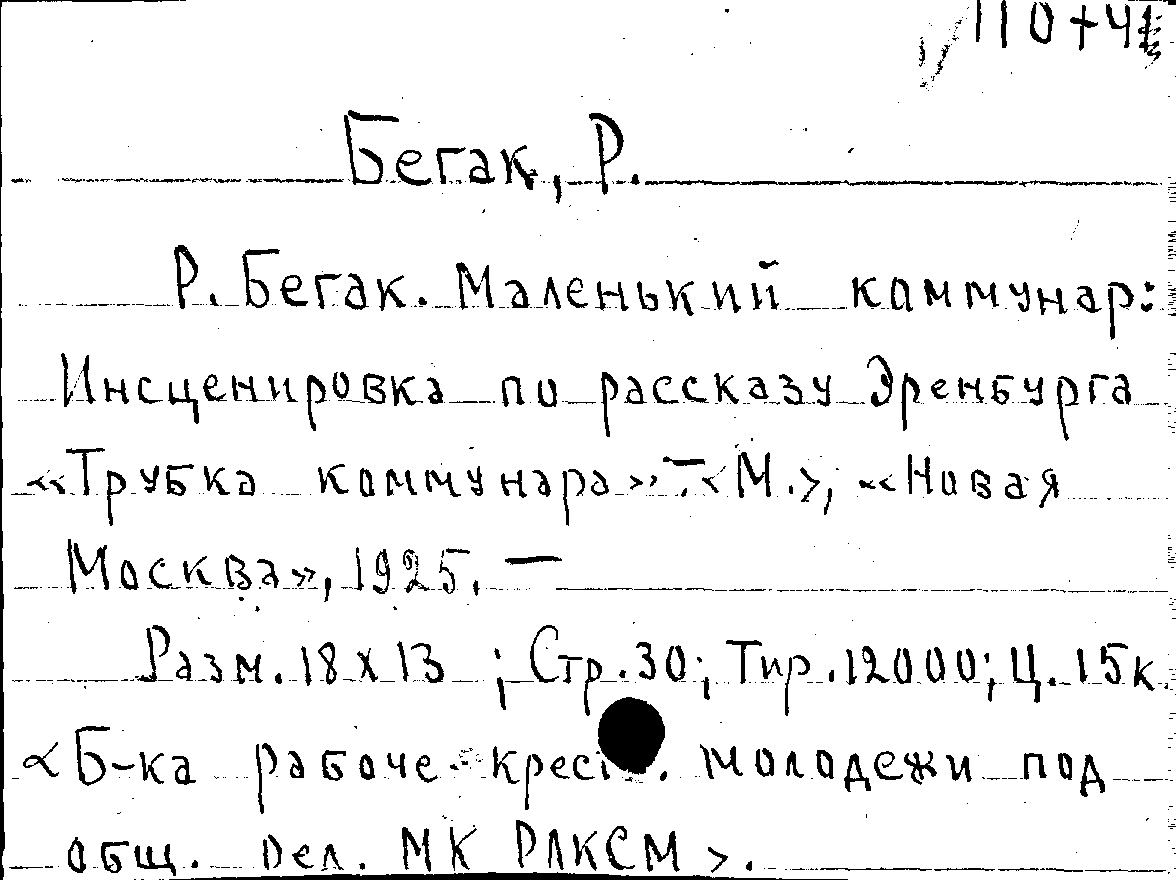 110+41
Бегак, Р.
Р. Бегак. Маленький коммунар:
Инсценировка по рассказу Эренбурга
«Трубка коммунара». – <М.>, «Новая
Москва», 1925. —
Разм. 18х13 ; Стр. 30; Тир. 12000; Ц. 15к.
<Б-ка рабоче-крест. молодежи под
общ. рел. МК РЛКСМ>.